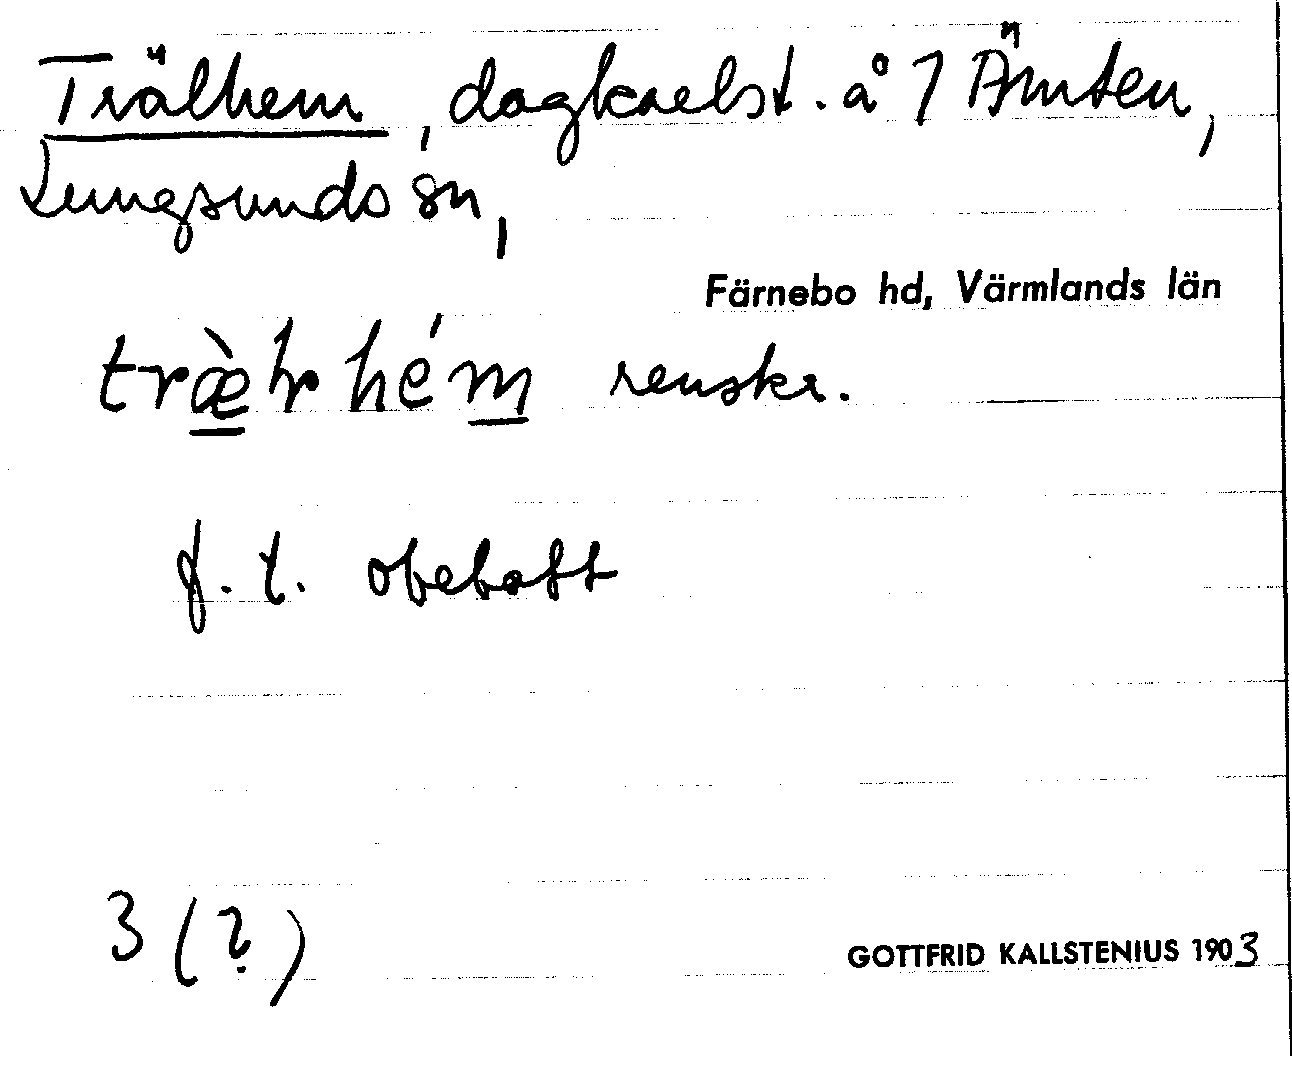 Trälhem, dagkarlst. å 1 Ämten,
Lungsunds sn,
Färnebo hd, Värmlands län
træ̀lrhém renskr.
f. t. obebott
3 (?)
GOTTFRID KALLSTENIUS 1903